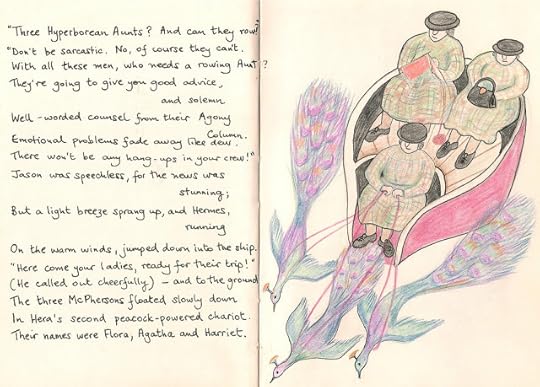 "Three Hyperborean Aunts? And can they row?"
"Don't be sarcastic. No, of course they can't.
With all these men, who needs a rowing Aunt?
They're going to give you good advice,
and solemn
Well-worded counsel from their Agony
Column.
Emotional problems fade away like dew.
There won't be any hang-ups in your crew!"
Jason was speechless, for the news was
stunning;
But a light breeze sprang up, and Hermes,
running
On the warm winds, jumped down into the ship.
"Here come your ladies, ready for their trip!"
(He called out cheerfully) – and to the ground
The three McPhersons floated slowly down
In Hera's second peacock-powered chariot.
Their names were Flora, Agatha and Harriet.